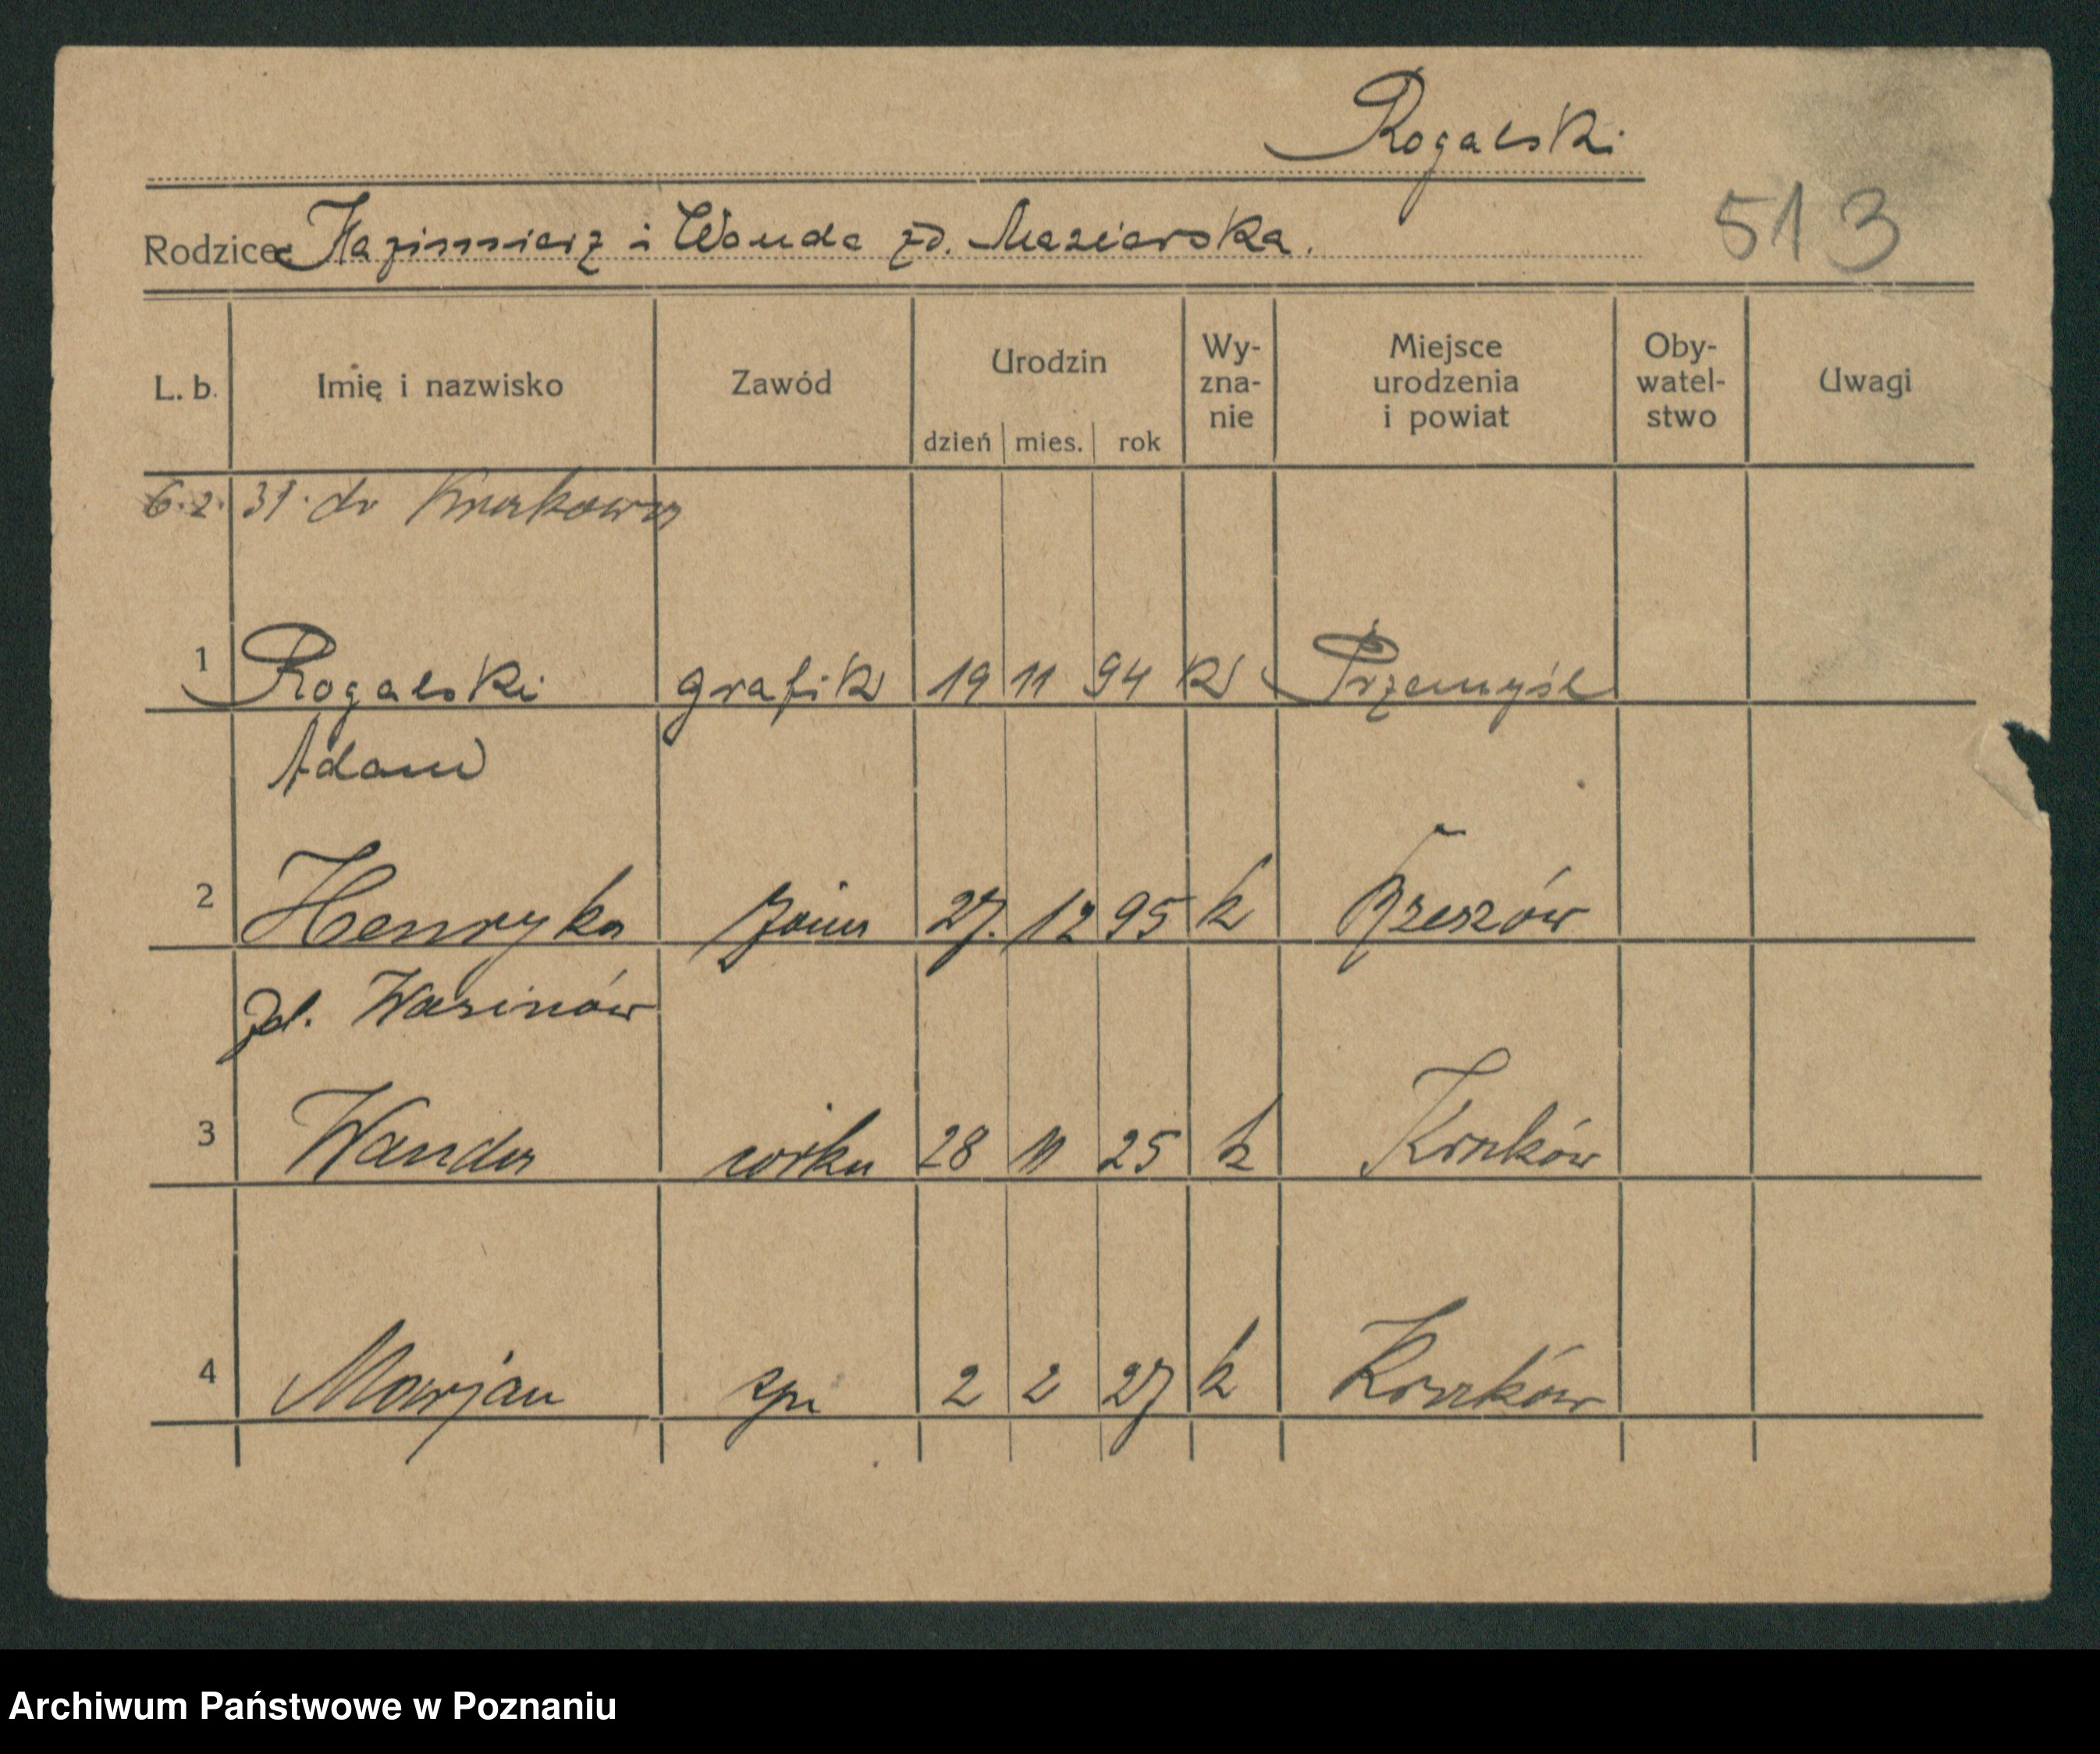 Rogalski
Rodzice Kazimierz i Wanda zd. Maziarska.
513
L. b. Imię i nazwisko Zawód Urodzin dzień mies. rok Wy-zna-nie Miejsce urodzenia i powiat Oby-watel-stwo Uwagi
6.2. 31. do Krakowa
1 Rogalski grafik 19 11 94 k Przemyśl
Adam
2 Henryka żona 27. 12 95 k Rzeszów
zd.
3 Wanda córka 28 11 25 k Kraków
4 Marjan syn 2 2 27 k Kraków
Archiwum Państwowe w Poznaniu